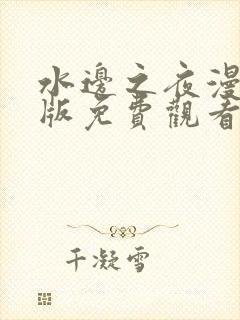 水邊之夜漫
版免費觀看
千凝雪